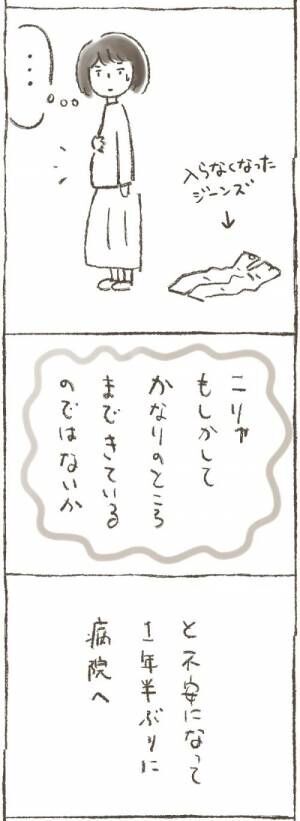 ・・・
入らなくなった
ジーンズ
↓
こりゃ
もしかして
かなりのところ
まできている
のではないか
と不安になって
1年半ぶりに
病院へ